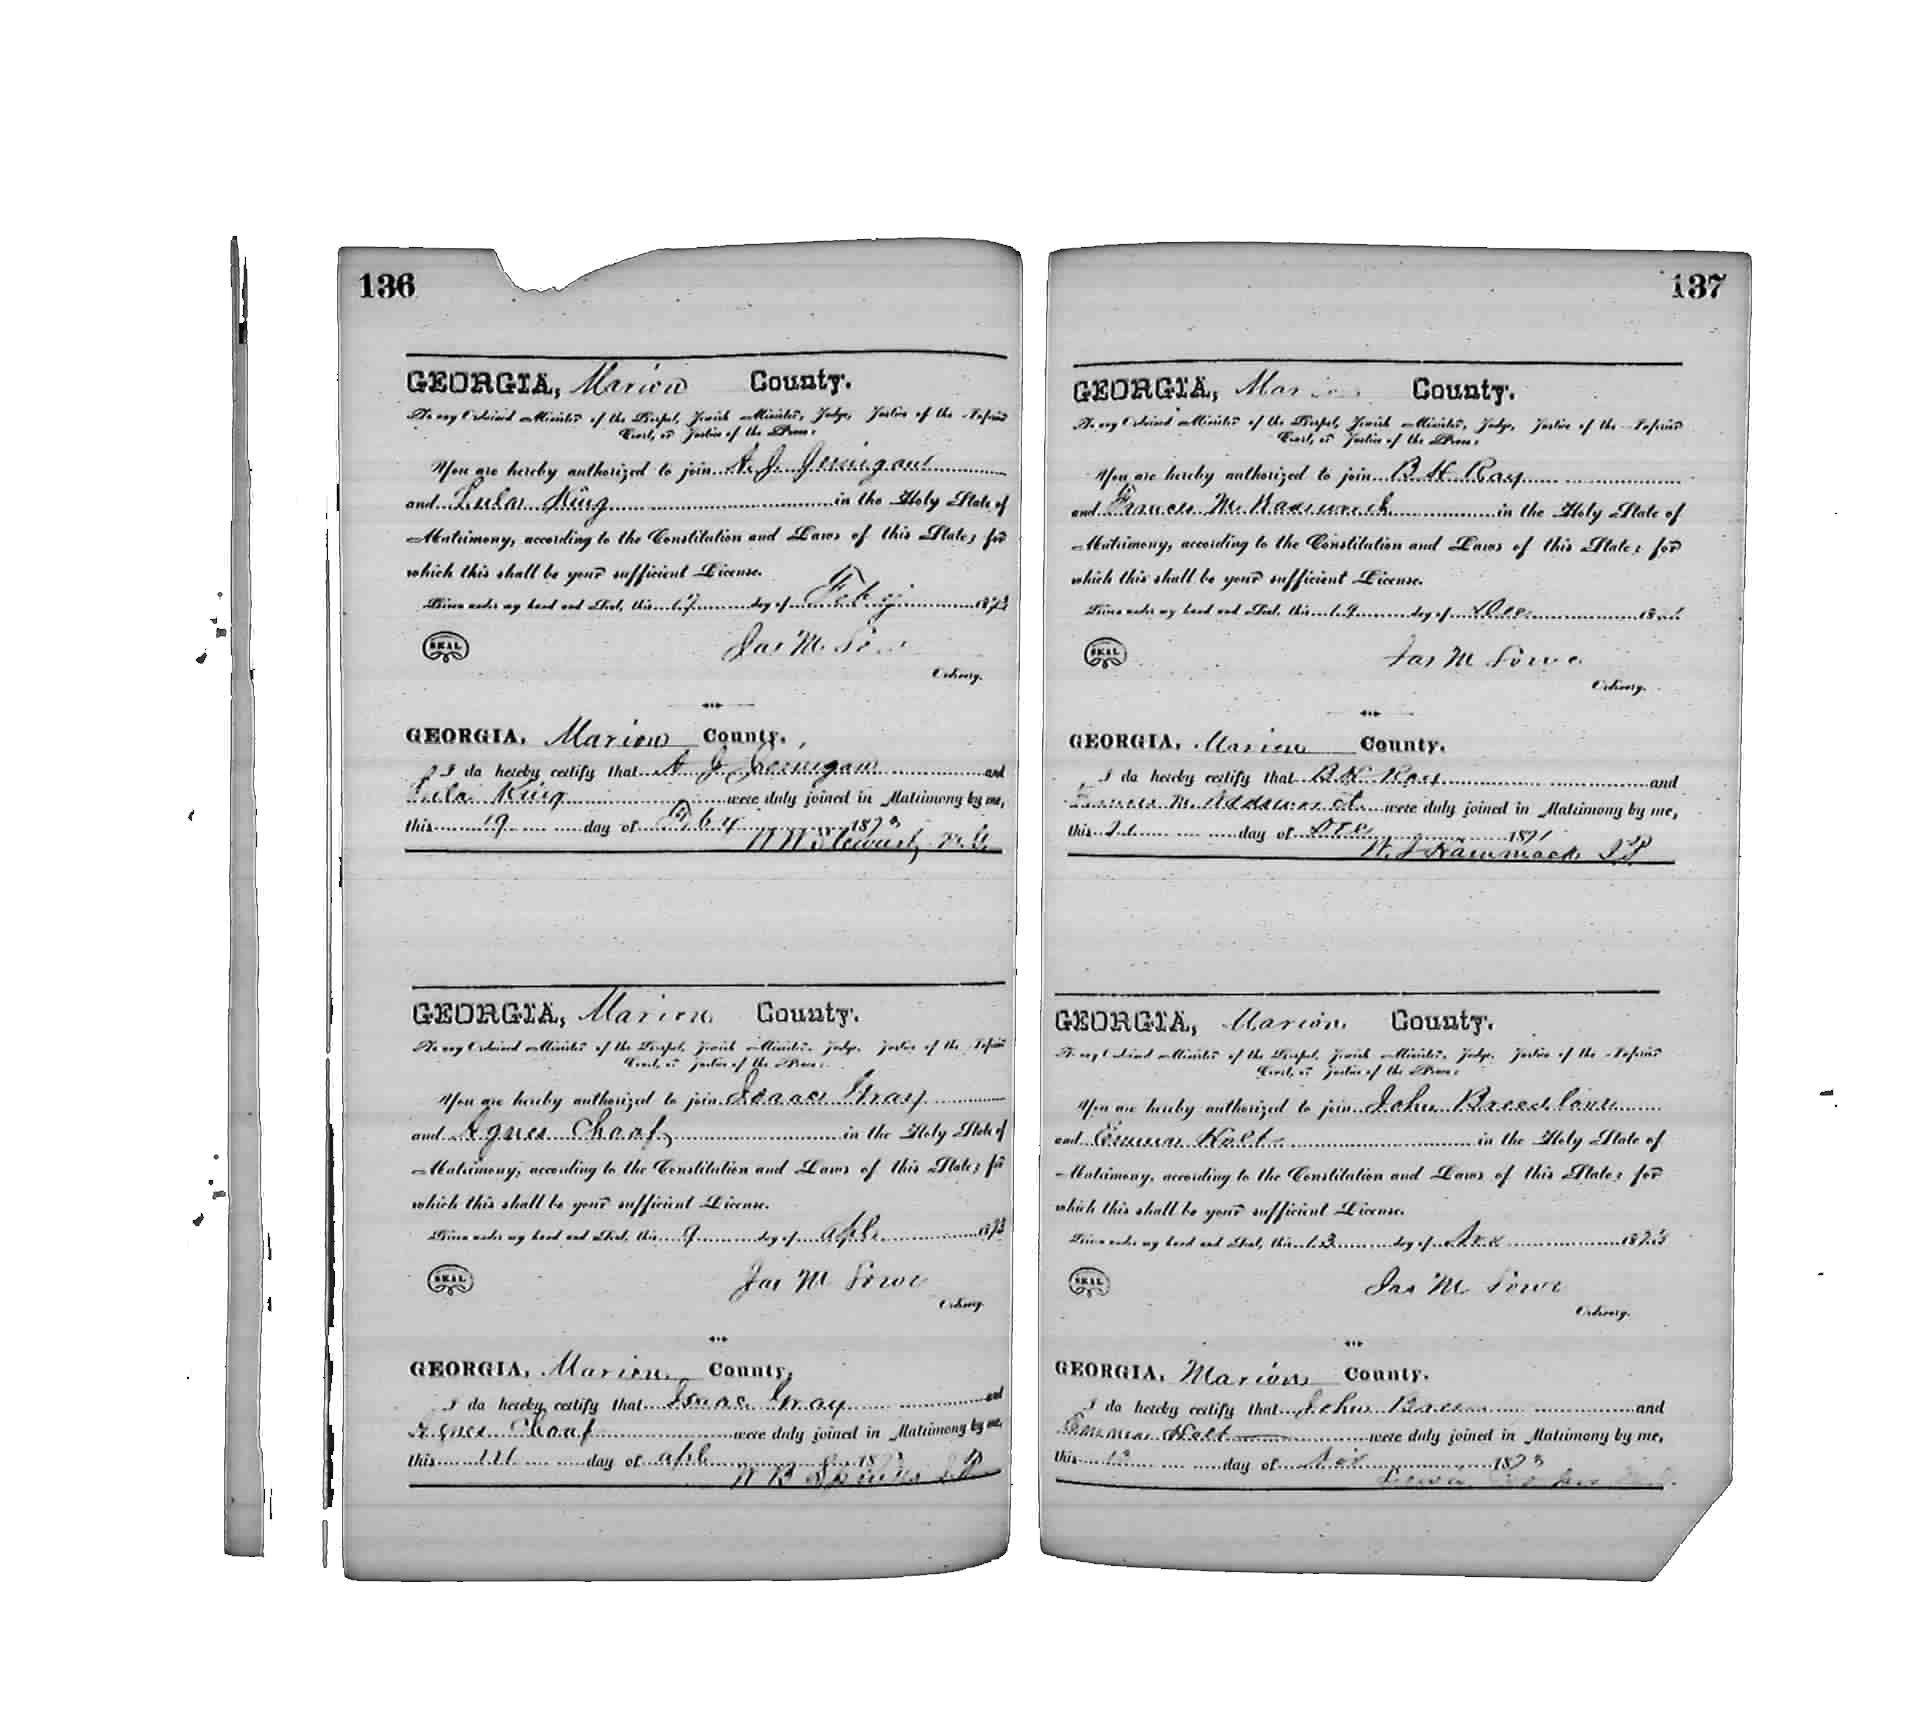 136
GEORGIA, Marion County.
To any Ordained Minister of the Gospel, Jewish Minister, Judge, Justice of the Inferior
Court, or Justice of the Peace:
You are hereby authorized to join A. J. Jernigan
and Lula King in the Holy State of
Matrimony, according to the Constitution and Laws of this State; for
which this shall be your sufficient License.
Given under my hand and Seal, this 17 day of Feby 1873
SEAL
Jas M Lowe
Ordinary.
GEORGIA, Marion County.
I do hereby certify that A J Jernigan and
Lula King were duly joined in Matrimony by me,
this 19 day of Feby 1873
W W Stewart, M. G.
GEORGIA, Marion County.
To any Ordained Minister of the Gospel, Jewish Minister, Judge, Justice of the Inferior
Court, or Justice of the Peace:
You are hereby authorized to join Isaac Gray
and Agnes Choaf in the Holy State of
Matrimony, according to the Constitution and Laws of this State; for
which this shall be your sufficient License.
Given under my hand and Seal, this 9 day of Apl 1873
SEAL
Jas M Lowe
Ordinary.
GEORGIA, Marion County,
I do hereby certify that Isaac Gray and
Agnes Choaf were duly joined in Matrimony by me
this day of Apl 187
W B J P
137
GEORGIA, Marion County.
To any Ordained Minister of the Gospel, Jewish Minister, Judge, Justice of the Inferior
Court, or Justice of the Peace:
You are hereby authorized to join B H Ray
and Frances M. in the Holy State of
Matrimony, according to the Constitution and Laws of this State; for
which this shall be your sufficient License.
Given under my hand and Seal, this 19 day of Dec 187
SEAL
Jas M Lowe
Ordinary.
GEORGIA, Marion County.
I do hereby certify that B H Ray and
Frances M. were duly joined in Matrimony by me,
this day of Dec 1871
W. J Hammack J P
GEORGIA, Marion County.
To any Ordained Minister of the Gospel, Jewish Minister, Judge, Justice of the Inferior
Court, or Justice of the Peace:
You are hereby authorized to join John Breedlove
and Emma Holt in the Holy State of
Matrimony, according to the Constitution and Laws of this State; for
which this shall be your sufficient License.
Given under my hand and Seal, this 13 day of Nov 1873
SEAL
Jas M Lowe
Ordinary.
GEORGIA, Marion County.
I do hereby certify that John Bree and
Emma Holt were duly joined in Matrimony by me,
this 13 day of Nov 1873